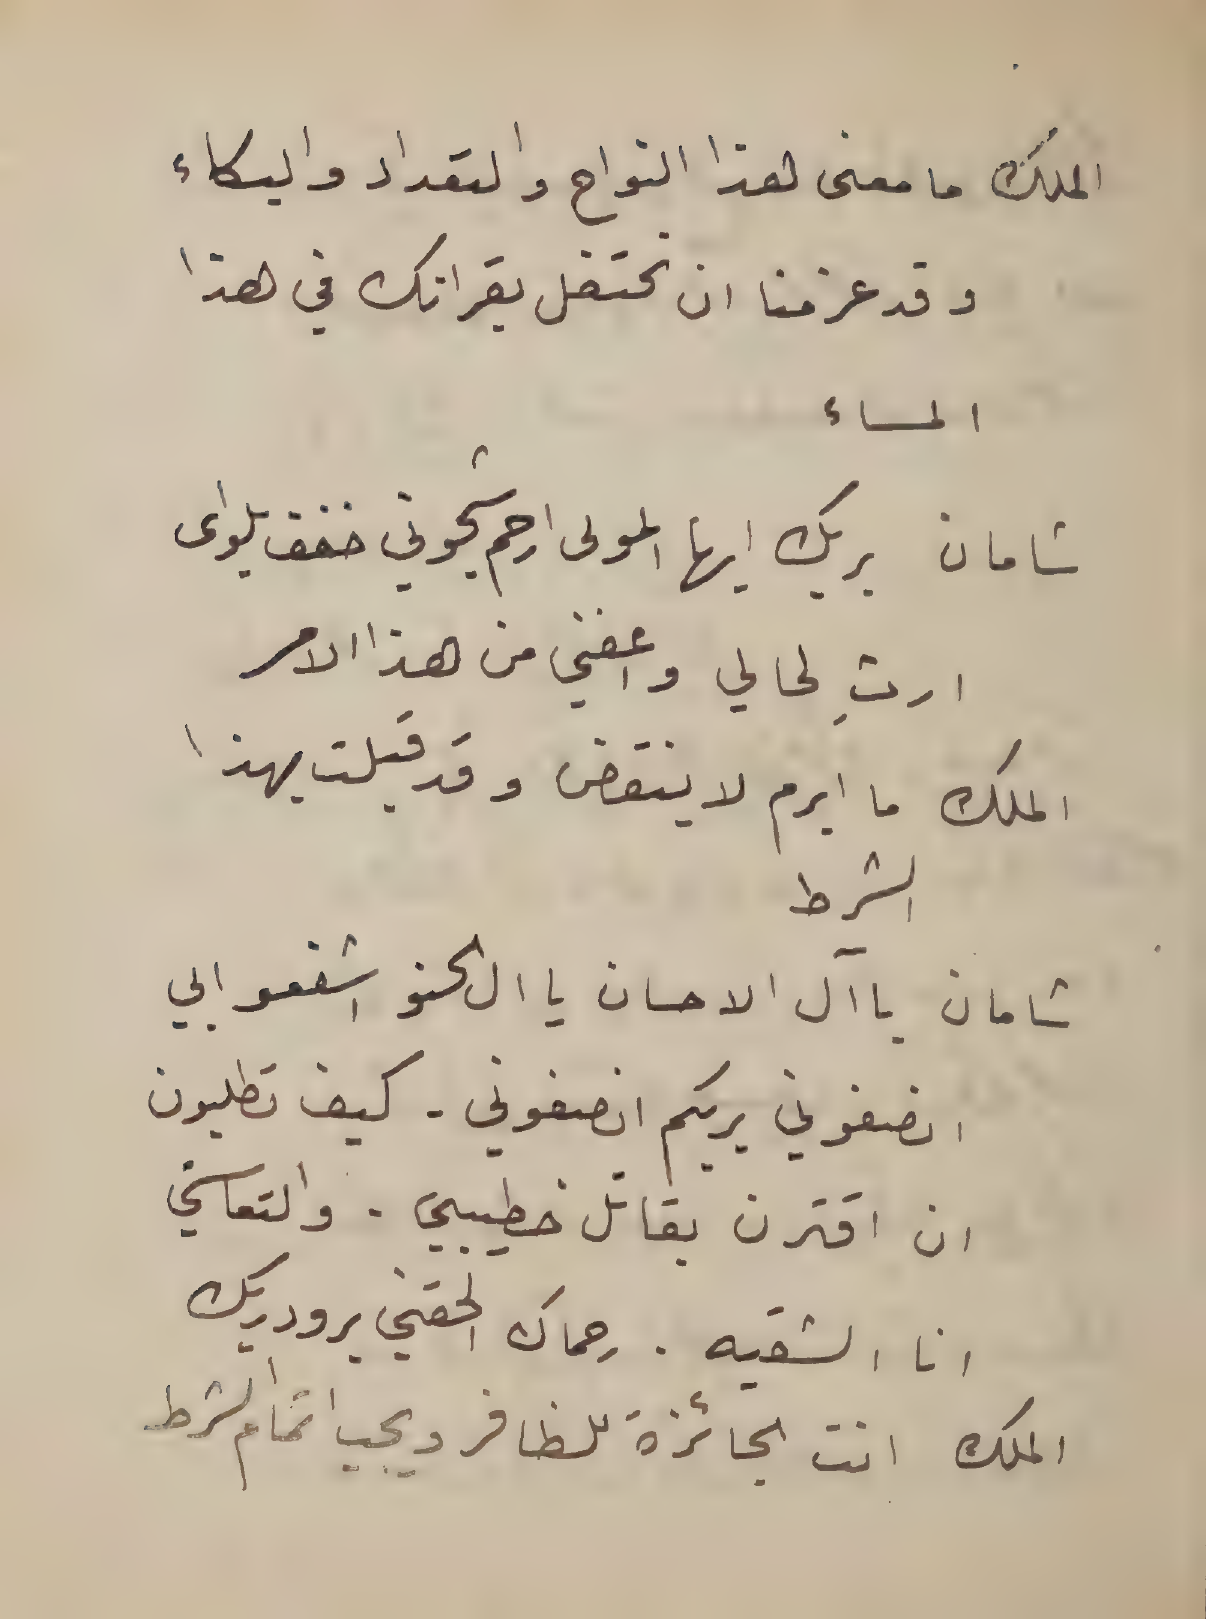 الملك ما معنى هذا النواح والتعداد والبكاء
وقد عزمنا ان نحتفل بقرانك في هذا
المساء
شامان بربك ايها المولى ارحم شجوني خفف بلواى
ارثِ لحالي واعفني من هذا الامر
الملك ما ابرم لا ينتقض وقد قبلت بهذا
الشرط
شامان يا آل الاحسان يا ال الحنو اشفعوا بي
انصفوني بربكم انصفوني - كيف تطلبون
ان اقترن بقاتل خطيبي . والتعاستي
انا الشقيه . رحماك الحقني برودريك
الملك انت الجائزة للظافر ويجب اتمام الشرط